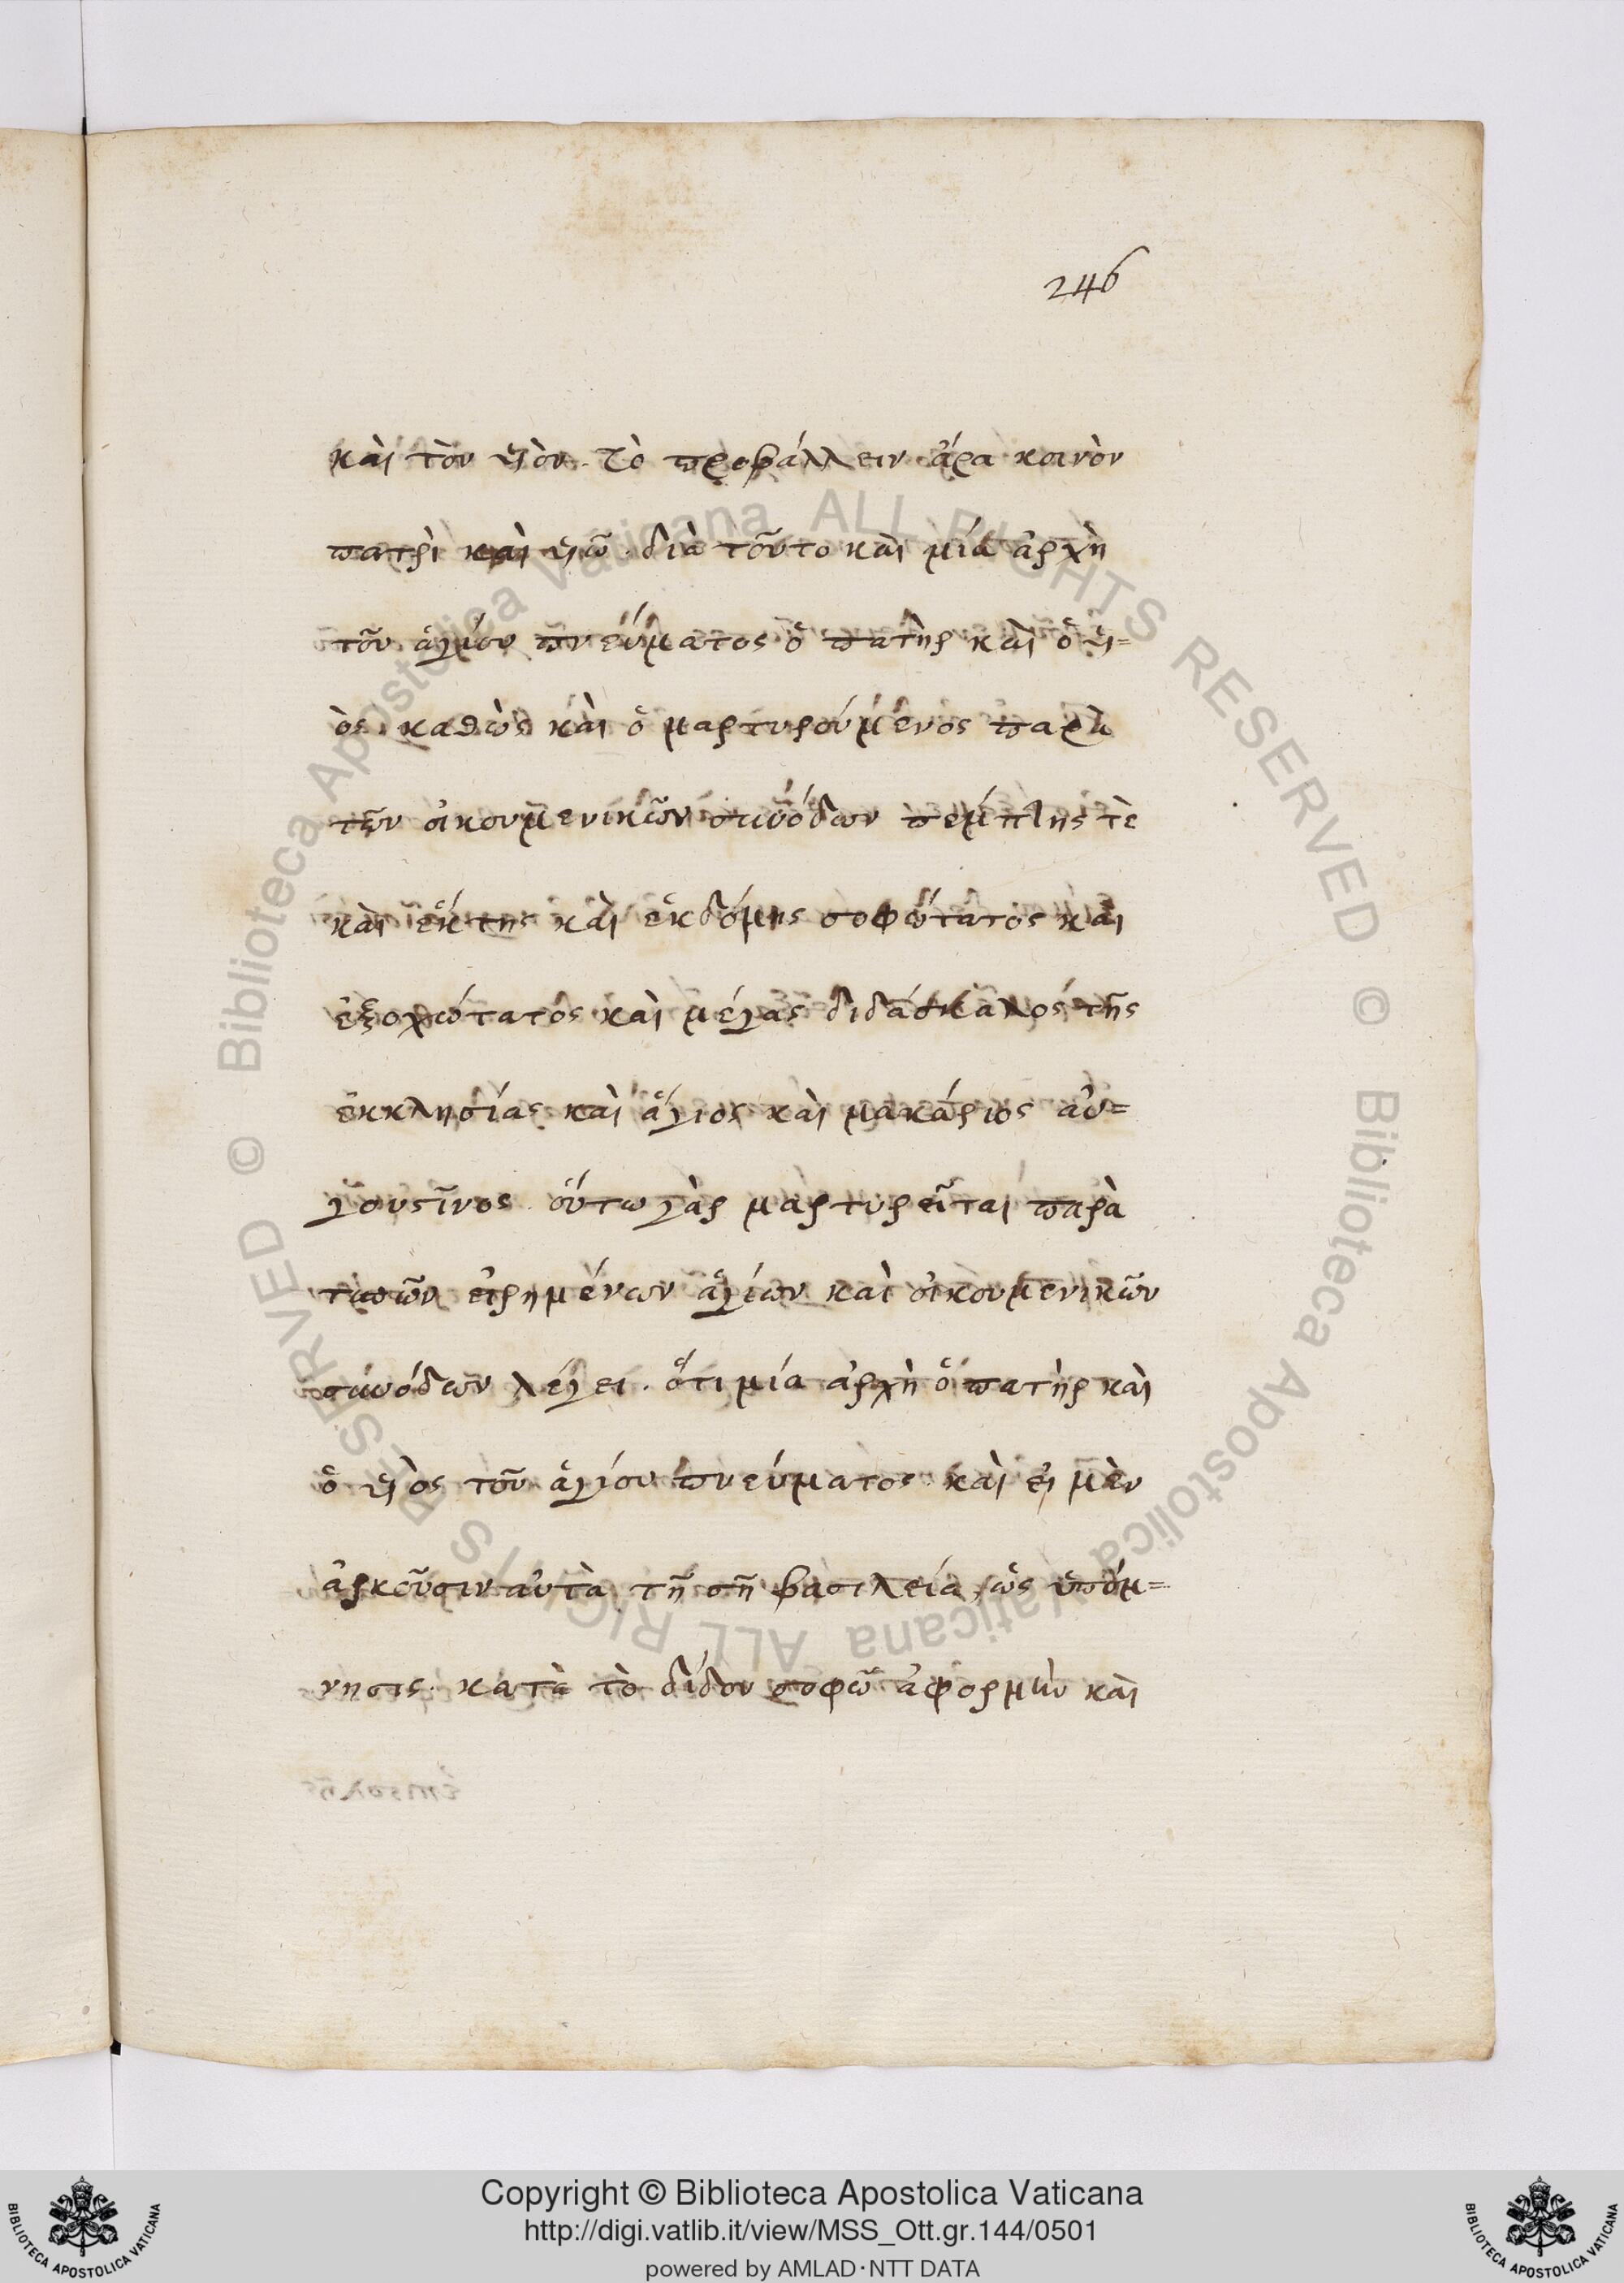 246
καὶ τὸν υἱὸν. τὸ προβάλλειν ἄρα κοινὸν
πατρὶ καὶ υἱῶ. διὰ τοῦτο καὶ μία ἀρχὴ
τοῦ ἁγίου πνεύματος ὁ πατὴρ καὶ ὁ υἱ=
ὸς. καθὼς καὶ ὁ μαρτυρούμενος παρὰ
τῶν οἰκουμενικῶν συνόδων πέμπτης τὲ
καὶ ἕκτης καὶ ἑκδόμης σοφώτατος καὶ
ἐξοχώτατος καὶ μέγας διδάσκαλος τῆς
ἐκκλησίας καὶ ἅγιος καὶ μακάριος αὐ=
γουστῖνος. οὕτω γὰρ μαρτυρεῖται παρὰ
τῶν εἰρημένων ἁγίων καὶ οἰκουμενικῶν
συνόδων λέγει. ὅτι μία ἀρχὴ ὁ πατὴρ καὶ
ὁ υἱὸς τοῦ ἁγίου πνεύματος. καὶ εἰ μὲν
ἀρκοῦσιν αὐτὰ τῆ σῆ βασιλεία, ὡς ὑπόμ=
νησις. κατὰ τὸ δίδου σοφῶ ἀφορμὴν καὶ
Copyright © Biblioteca Apostolica Vaticana
http://digi.vatlib.it/view/MSS_Ott.gr.144/0501
powered by AMLAD·NTT DATA
© Biblioteca Apostolica Vaticana ALL RIGHTS RESERVED
© Biblioteca Apostolica Vaticana ALL RIGHTS RESERVED
BIBLIOTECA APOSTOLICA VATICANA
BIBLIOTECA APOSTOLICA VATICANA